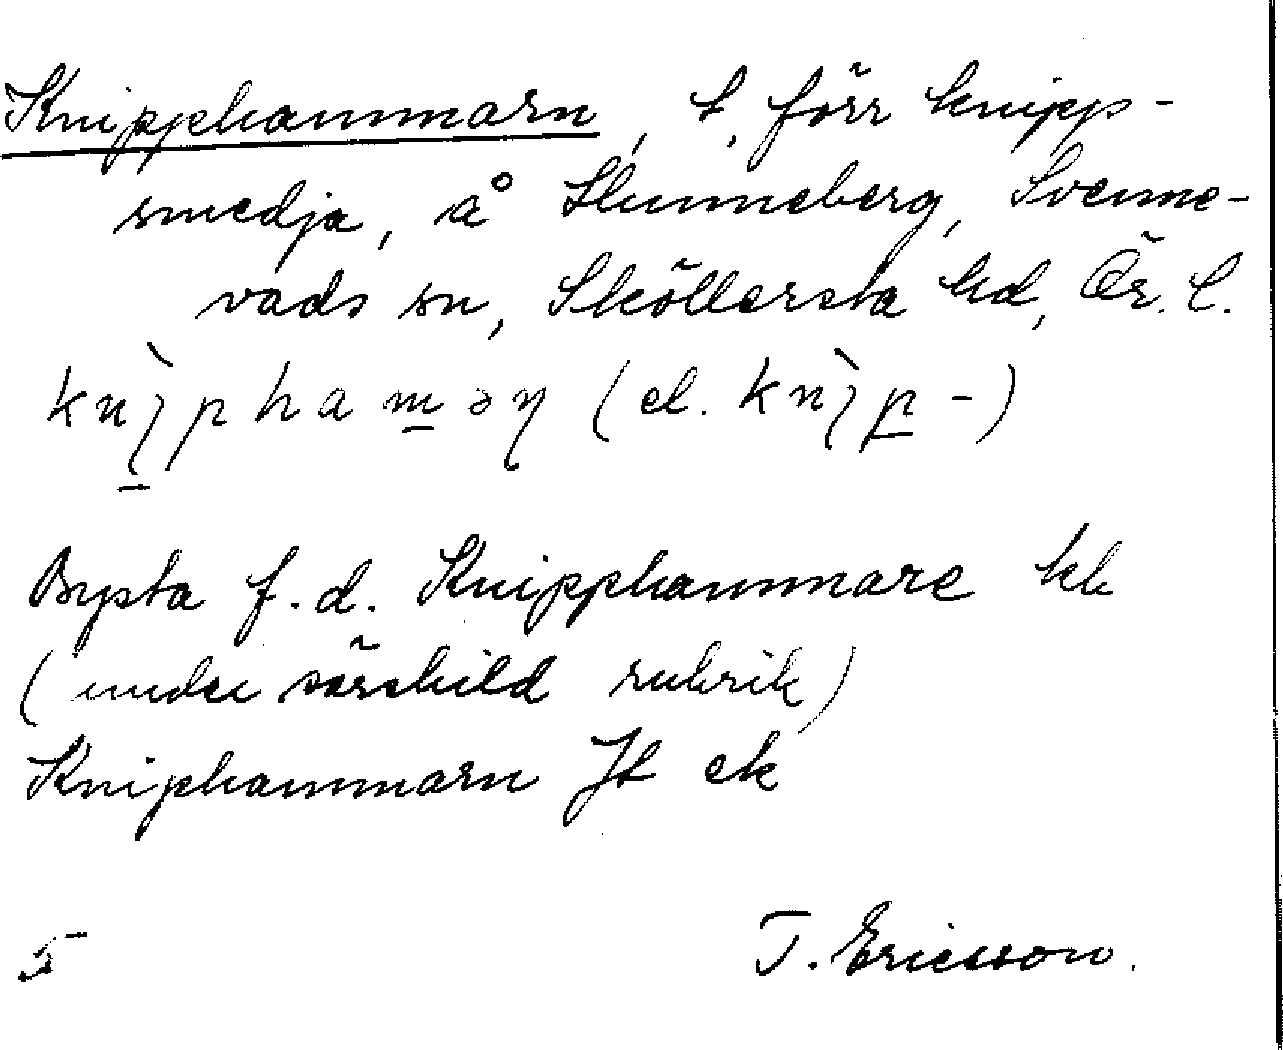 Knipphammarn, t, förr knipp-
smedja, å Slunneberg, Svenne-
vads sn, Sköllersta hd, Ör. l.
knìpham̲əη (el. knìp̲-)
Bysta f.d. Knipphammare kb
(under särskild rubrik)
Kniphammarn Jt ek
5 T. Ericsson.